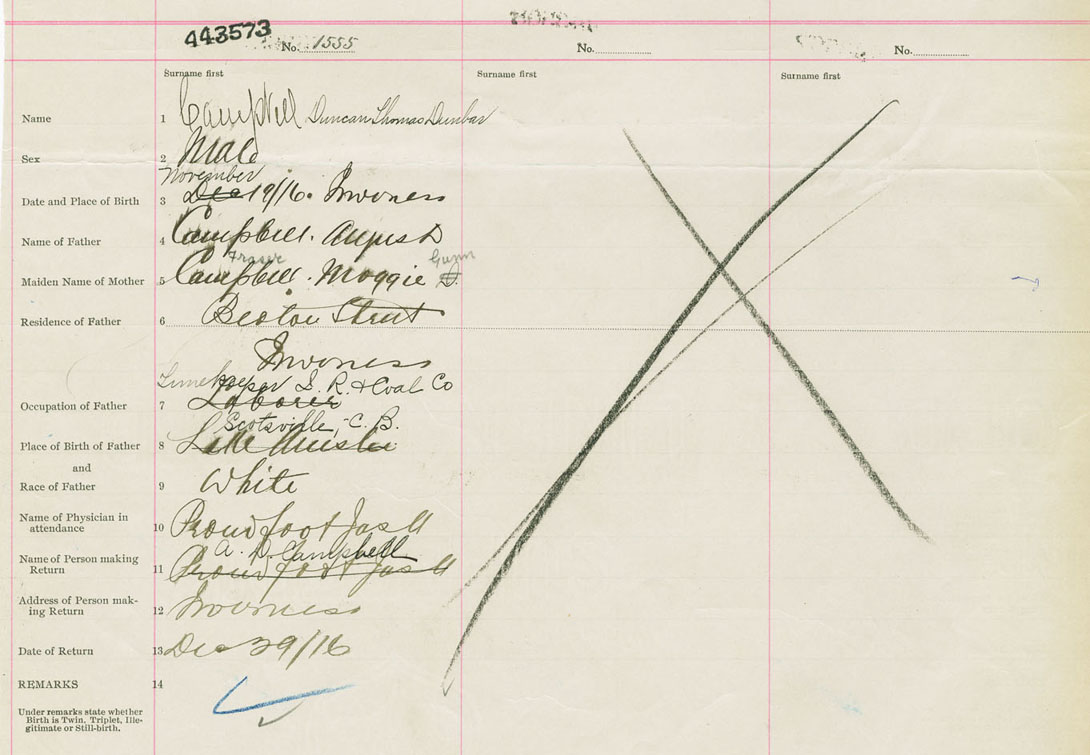 443573
No. 1555
No.
No.
Surname first
Surname first
Surname first
Name 1 Campbell Duncan Thomas Dunbar
Sex 2 Male
November
Date and Place of Birth 3 Dec 19/16. Inverness
Name of Father 4 Campbell. August D
Fraser Gunn
Maiden Name of Mother 5 Campbell. Maggie D.
Residence of Father 6 Beaton Street
Inverness
Timekeeper I. R. & Coal Co
Occupation of Father 7 Laborer
Scotsville, C. B.
Place of Birth of Father 8 Lake
and
Race of Father 9 White
Name of Physician in
attendance 10 Proudfoot Jas A
A. D. Campbell
Name of Person making
Return 11 Proudfoot Jas A
Address of Person mak-
ing Return 12 Inverness
Date of Return 13 Dec 29/16
REMARKS 14
Under remarks state whether
Birth is Twin, Triplet, Ille-
gitimate or Still-birth.